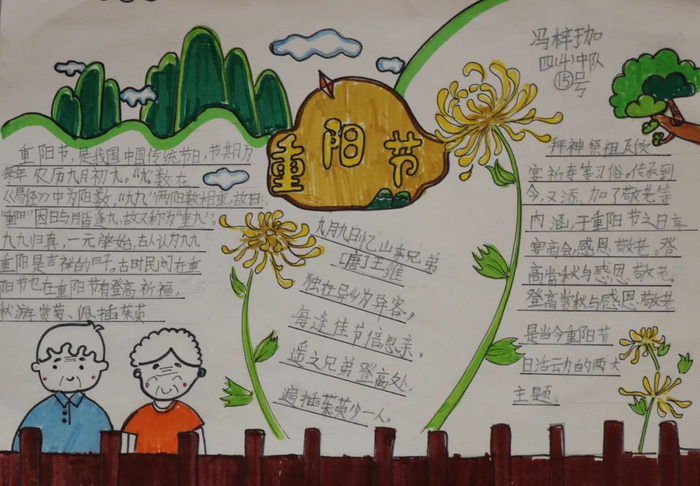 冯梓珈
四(4)中队
⑮号
重阳节
重阳节，是我国中国传统节日，节装日为
每年农历九月初九。"九"数在
《易经》中为阳数，"九九"两阳数相重，故曰
"重阳"因日与月皆逢九，故又称为"重九"。
九九归真，一元肇始，古人认为九九
重阳是吉祥的日子。古时民间在重
阳节也在重阳节有登高祈福，
秋游赏菊、佩插茱萸
九月九日忆山东兄弟
[唐]王维
独在异乡为异客，
每逢佳节倍思亲。
遥之兄弟登高处，
遍插茱萸少一人。
拜神祭祖及饮
宴祈寿等习俗。传承到
今，又添加了敬老等
内涵，于重阳节之日享
宴高会，感恩敬老。登
高赏秋与感恩敬老。
登高赏秋与感恩敬老
是当今重阳节
日活动的两大
主题。